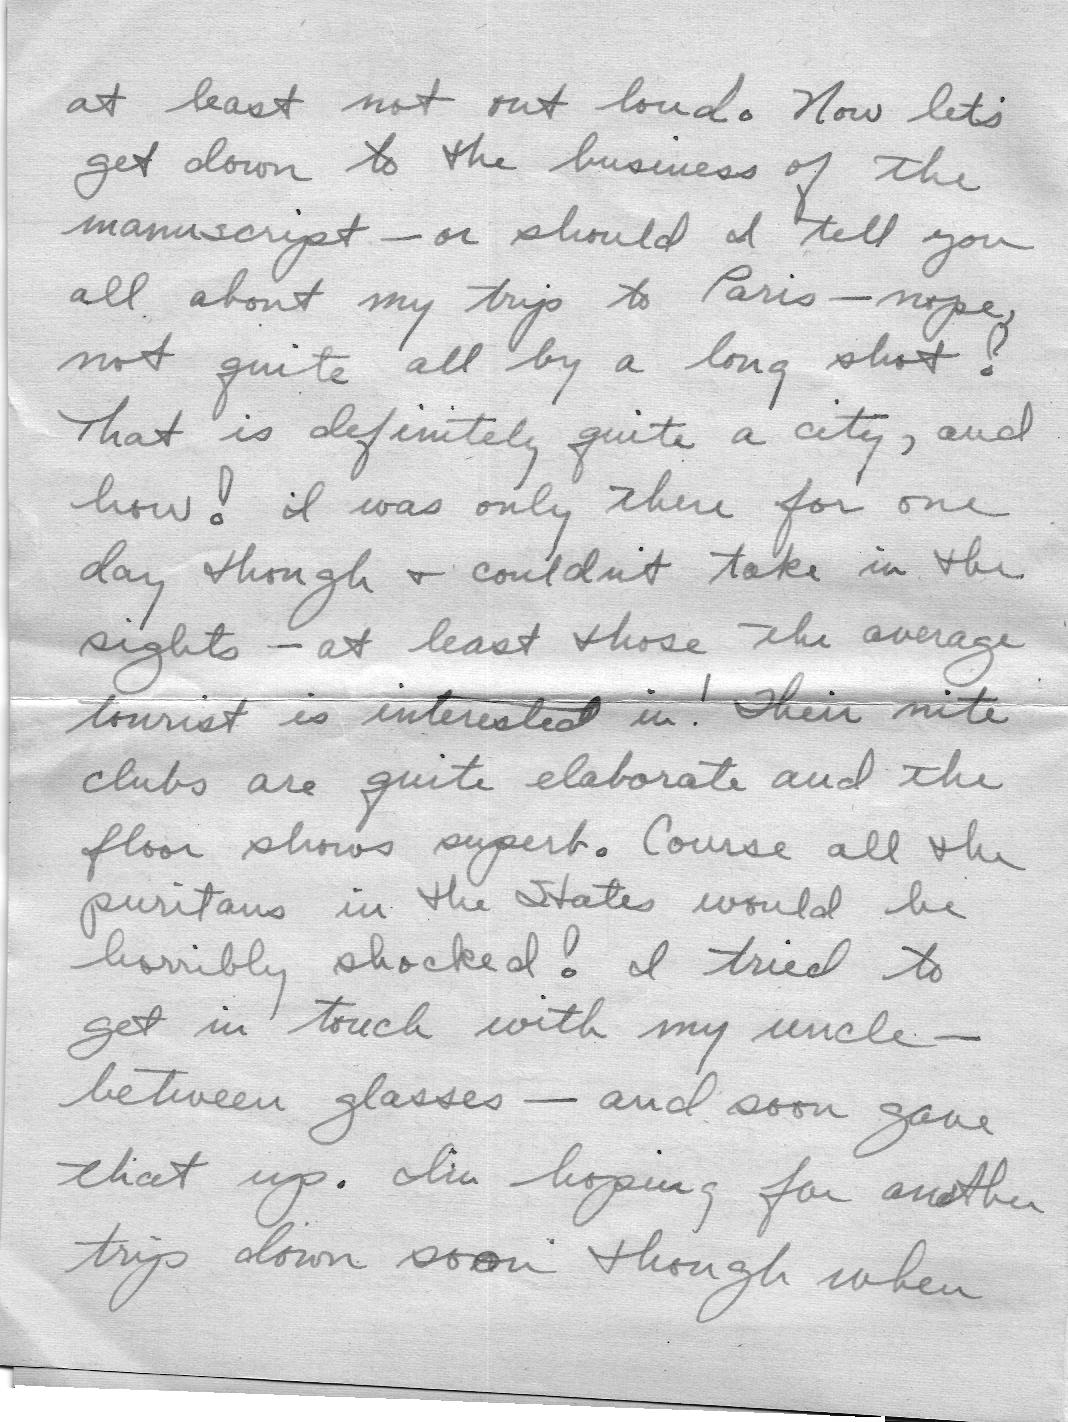 at least not out loud. Now let's
get down to the business of the
manuscript – or should I tell you
all about my trip to Paris – nope,
not quite all by a long shot!
That is definitely quite a city, and
how! I was only there for one
day though + couldn't take in the
sights – at least those the average
tourist is interested in! Their nite
clubs are quite elaborate and the
floor shows superb. Course all the
puritans in the States would be
horribly shocked! I tried to
get in touch with my uncle –
between glasses – and soon gave
that up. I'm hoping for another
trip down soon though when